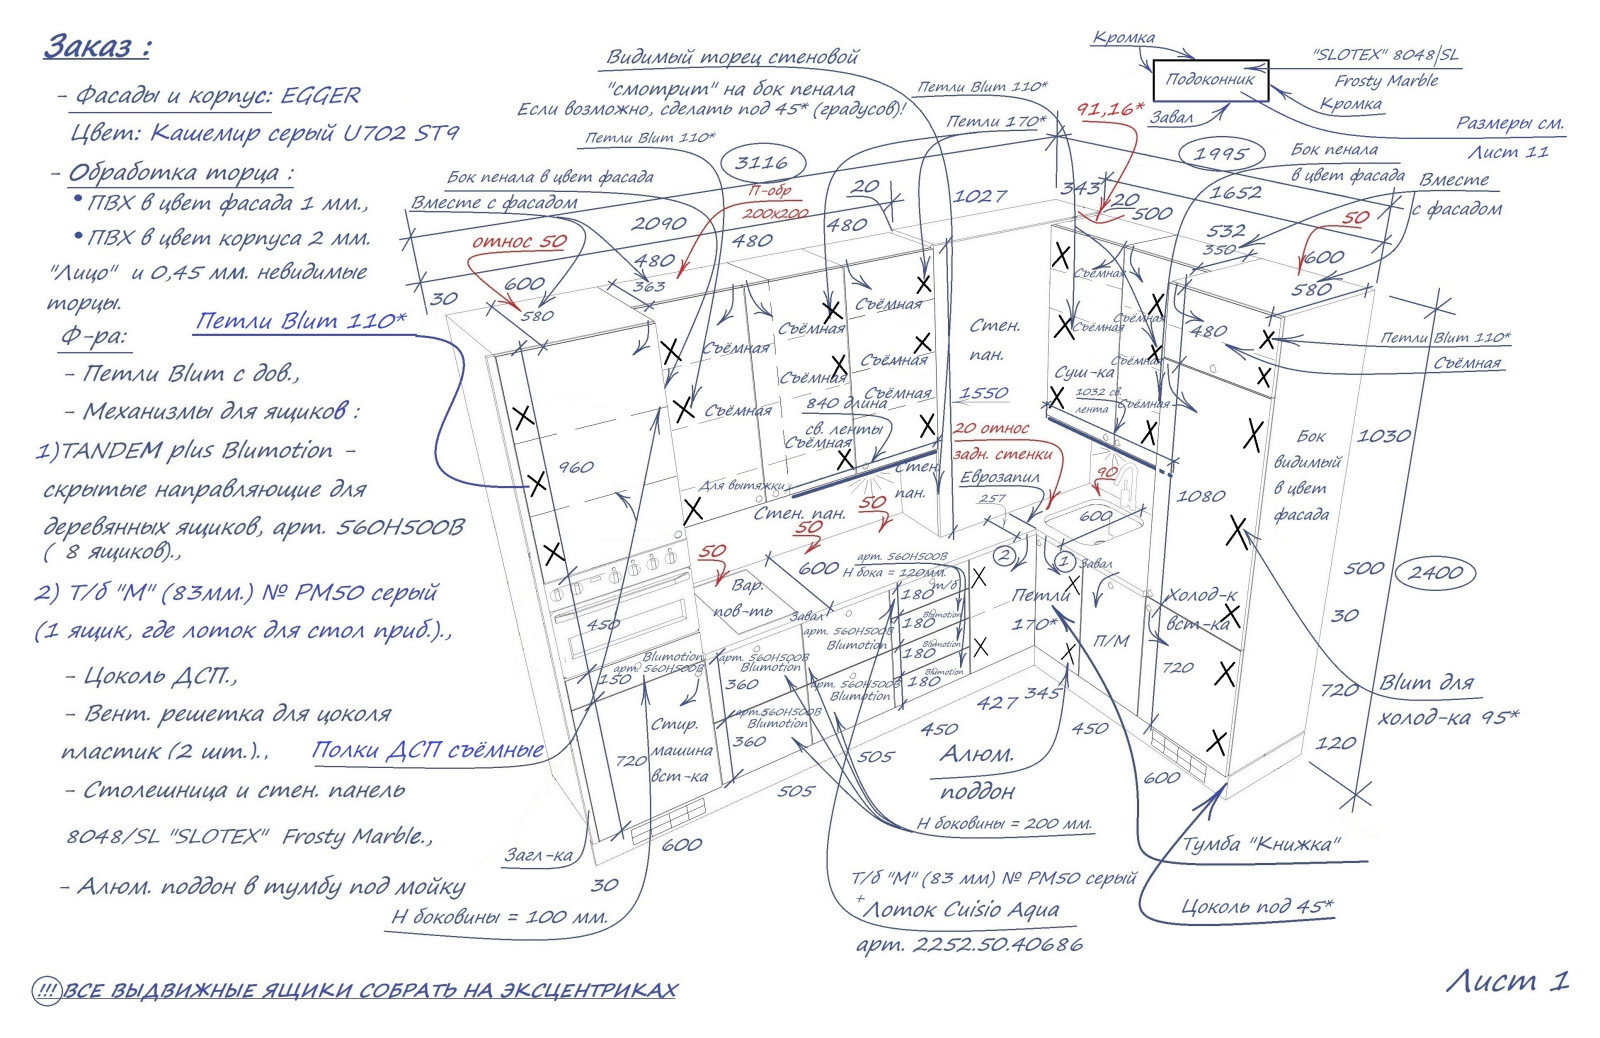 Заказ :
- Фасады и корпус: EGGER
Цвет: Кашемир серый U702 ST9
- Обработка торца :
• ПВХ в цвет фасада 1 мм.,
• ПВХ в цвет корпуса 2 мм.
"Лицо" и 0,45 мм. невидимые
торцы.
Ф-ра:
- Петли Blum с дов.,
- Механизмы для ящиков :
1)TANDEM plus Blumotion -
скрытые направляющие для
деревянных ящиков, арт. 560H500B
( 8 ящиков).,
2) Т/б "М" (83мм.) № PM50 серый
(1 ящик, где лоток для стол приб.).,
- Цоколь ДСП.,
- Вент. решетка для цоколя
пластик (2 шт.).,
- Столешница и стен. панель
8048/SL "SLOTEX" Frosty Marble.,
- Алюм. поддон в тумбу под мойку
!!! ВСЕ ВЫДВИЖНЫЕ ЯЩИКИ СОБРАТЬ НА ЭКСЦЕНТРИКАХ
Петли Blum 110*
Полки ДСП съёмные
Загл-ка
Н боковины = 100 мм.
Видимый торец стеновой
"смотрит" на бок пенала
Если возможно, сделать под 45* (градусов)!
Петли Blum 110*
Бок пенала в цвет фасада
Вместе с фасадом
относ 50
П-обр
200x200
3116
20
2090
480
480
480
363
600
580
30
Петли Blum 110*
Петли 170*
91,16*
1027
343
20
500
1995
1652
532
350
600
580
50
Кромка
Подоконник
"SLOTEX" 8048/SL
Frosty Marble
Кромка
Завал
Размеры см.
Лист 11
Бок пенала
в цвет фасада
Вместе
с фасадом
Съёмная
Съёмная
Съёмная
Съёмная
Съёмная
Съёмная
Съёмная
Съёмная
840 длина
св. ленты
Для вытяжки
Стен. пан.
Стен.
пан.
1550
Стен.
пан.
20 относ
задн. стенки
Еврозапил
257
Съёмная
Съёмная
Съёмная
Съёмная
Съёмная
Суш-ка
1032 св.
лента
480
Петли Blum 110*
Съёмная
Бок
видимый
в цвет
фасада
1030
1080
500
2400
30
720
120
960
450
150
720
50
50
50
90
600
600
Вар.
пов-ть
Завал
Завал
арт. 560H500B
Н бока = 120мм.
т/б
180
180
180
180
Blumotion
Blumotion
Blumotion
2
1
Петли
170*
П/М
Холод-к
вст-ка
720
Blumotion
арт. 560H500B
арт. 560H500B
Blumotion
арт. 560H500B
Blumotion
арт. 560H500B
Blumotion
арт.560H500B
Blumotion
360
360
Стир.
машина
вст-ка
600
30
505
505
450
427
345
450
600
Алюм.
поддон
Н боковины = 200 мм.
Т/б "М" (83 мм) № PM50 серый
+
Лоток Cuisio Aqua
арт. 2252.50.40686
Blum для
холод-ка 95*
Тумба "Книжка"
Цоколь под 45*
Лист 1